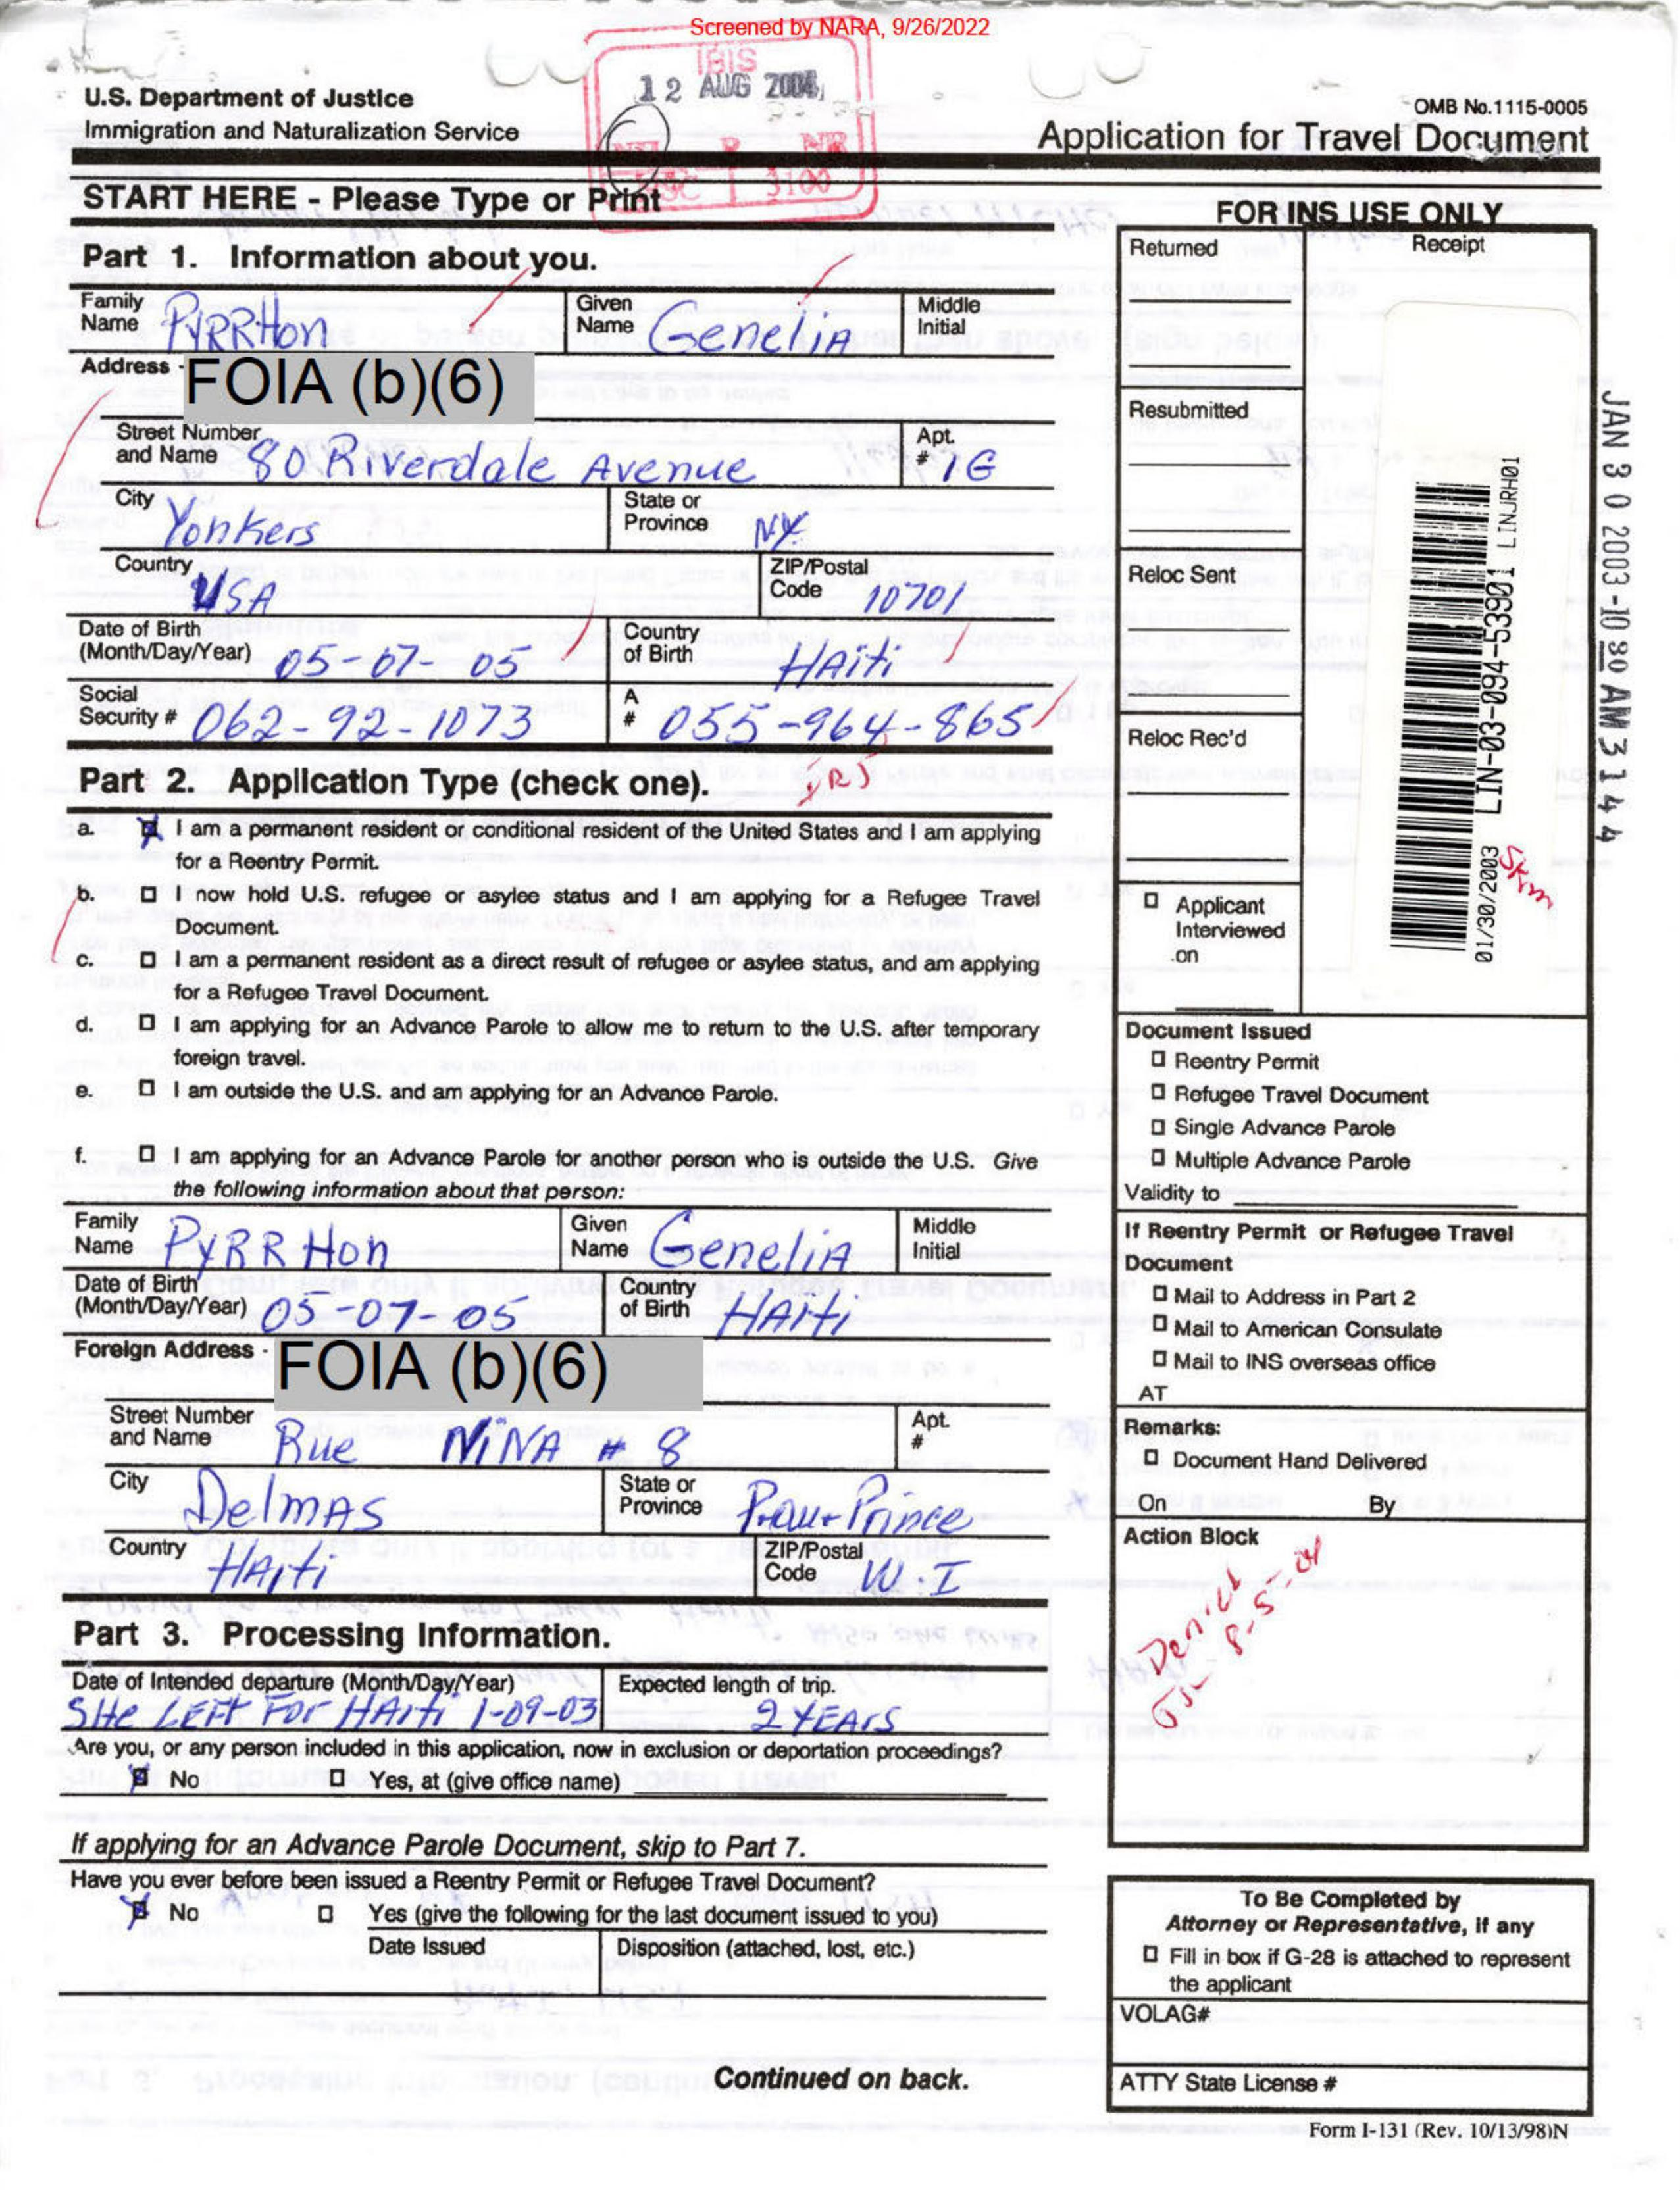 Screened by NARA, 9/26/2022
IBIS
12 AUG 2004
U.S. Department of Justice
Immigration and Naturalization Service
OMB No.1115-0005
Application for Travel Document
START HERE - Please Type or Print
3100
Part 1. Information about you.
Family Name PYRRHon
Given Name GeneliA
Middle Initial
Address -
FOIA (b)(6)
Street Number and Name 80 Riverdale Avenue
Apt. # 1G
City Yonkers
State or Province NY
Country USA
ZIP/Postal Code 10701
Date of Birth (Month/Day/Year) 05-07-05
Country of Birth HAiti
Social Security # 062-92-1073
A # 055-964-865
Part 2. Application Type (check one).
a. I am a permanent resident or conditional resident of the United States and I am applying
for a Reentry Permit.
b. I now hold U.S. refugee or asylee status and I am applying for a Refugee Travel
Document.
c. I am a permanent resident as a direct result of refugee or asylee status, and am applying
for a Refugee Travel Document.
d. I am applying for an Advance Parole to allow me to return to the U.S. after temporary
foreign travel.
e. I am outside the U.S. and am applying for an Advance Parole.
f. I am applying for an Advance Parole for another person who is outside the U.S. Give
the following information about that person:
Family Name PYRRHon
Given Name GeneliA
Middle Initial
Date of Birth (Month/Day/Year) 05-07-05
Country of Birth HAiti
Foreign Address -
FOIA (b)(6)
Street Number and Name Rue NiNA # 8
Apt. #
City DelmAS
State or Province P-au-Prince
Country HAiti
ZIP/Postal Code W.I
Part 3. Processing Information.
Date of Intended departure (Month/Day/Year)
SHe LEFT FOR HAiti 1-09-03
Expected length of trip.
2 YEArs
Are you, or any person included in this application, now in exclusion or deportation proceedings?
No Yes, at (give office name)
If applying for an Advance Parole Document, skip to Part 7.
Have you ever before been issued a Reentry Permit or Refugee Travel Document?
No Yes (give the following for the last document issued to you)
Date Issued
Disposition (attached, lost, etc.)
Continued on back.
FOR INS USE ONLY
Returned
Receipt
Resubmitted
Reloc Sent
Reloc Rec'd
Applicant
Interviewed
on
01/30/2003 LIN-03-094-53901 LINJRH01
JAN 30 2003-10 80 AM 3144
Document Issued
Reentry Permit
Refugee Travel Document
Single Advance Parole
Multiple Advance Parole
Validity to
If Reentry Permit or Refugee Travel
Document
Mail to Address in Part 2
Mail to American Consulate
Mail to INS overseas office
AT
Remarks:
Document Hand Delivered
On By
Action Block
Denied
8-5-04
To Be Completed by
Attorney or Representative, if any
Fill in box if G-28 is attached to represent
the applicant
VOLAG#
ATTY State License #
Form I-131 (Rev. 10/13/98)N